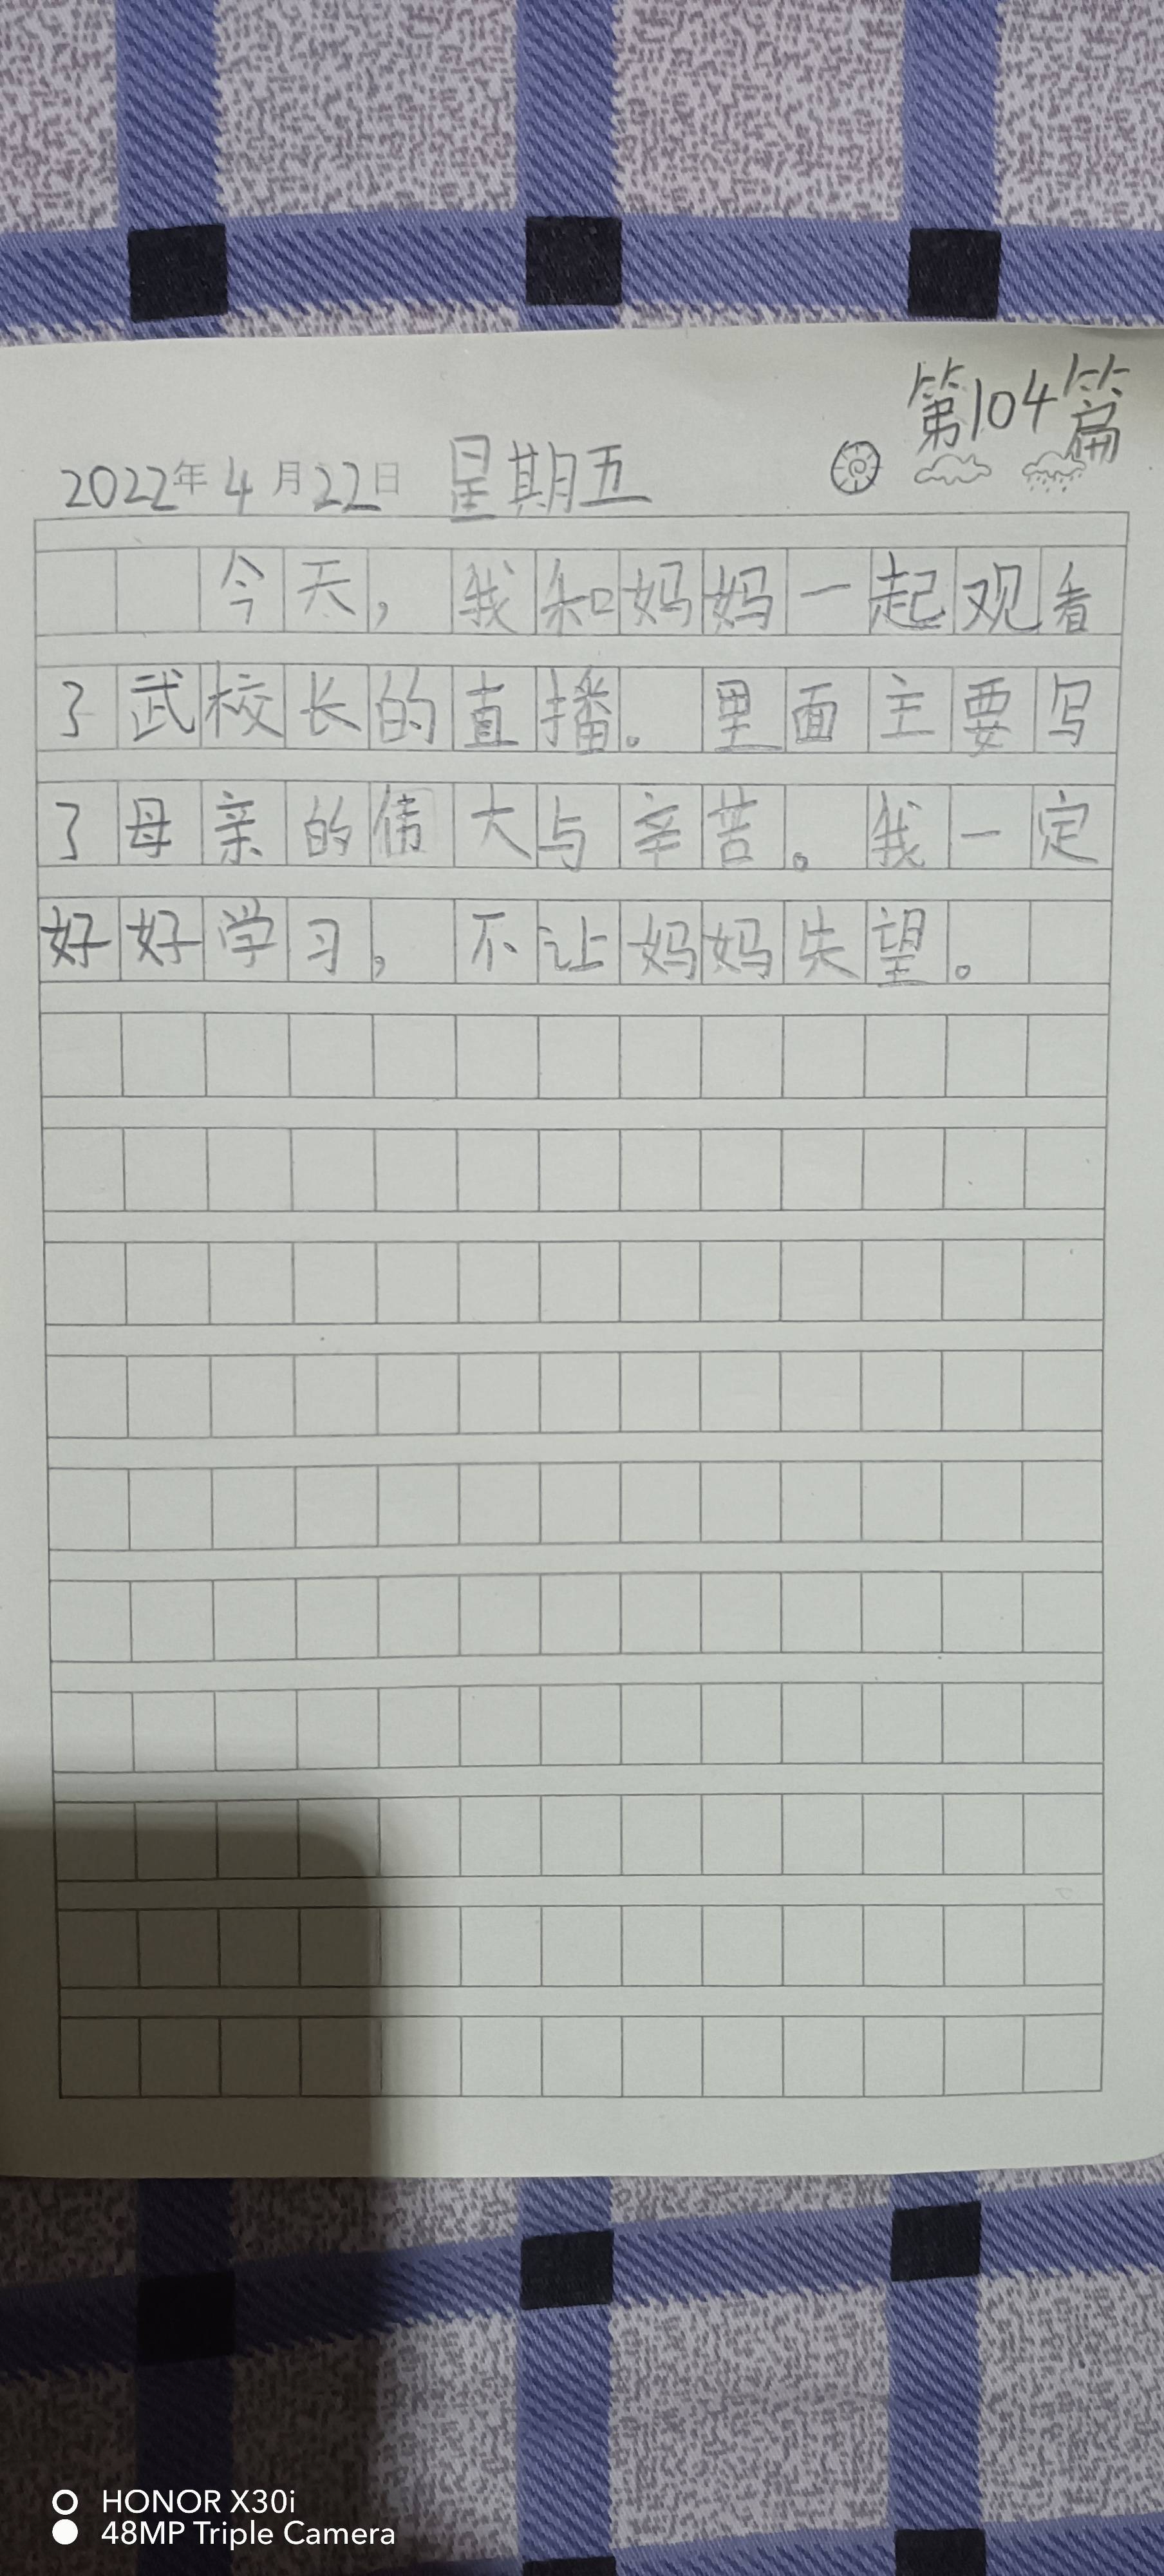 第104篇
2022年4月22日 星期五
今天，我和妈妈一起观看
了武校长的直播。里面主要写
了母亲的伟大与辛苦。我一定
好好学习，不让妈妈失望。
HONOR X30i
48MP Triple Camera